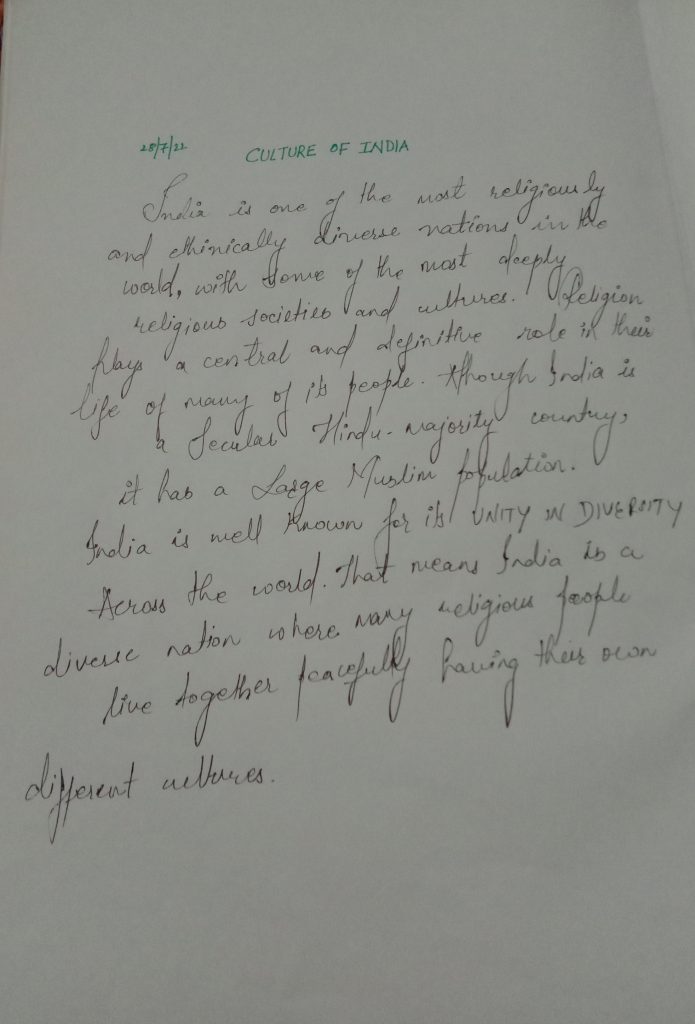 28/7/22 CULTURE OF INDIA
India is one of the most religiously
and ethinically diverse nations in the
world, with some of the most deeply
religious societies and cultures. Religion
plays a central and definitive role in their
life of many of its people. Although India is
a Secular Hindu-majority country,
it has a Large Muslim population.
India is well known for its UNITY IN DIVERSITY
Across the world. That means India is a
diverse nation where many religious people
live together peacefully having their own
different cultures.